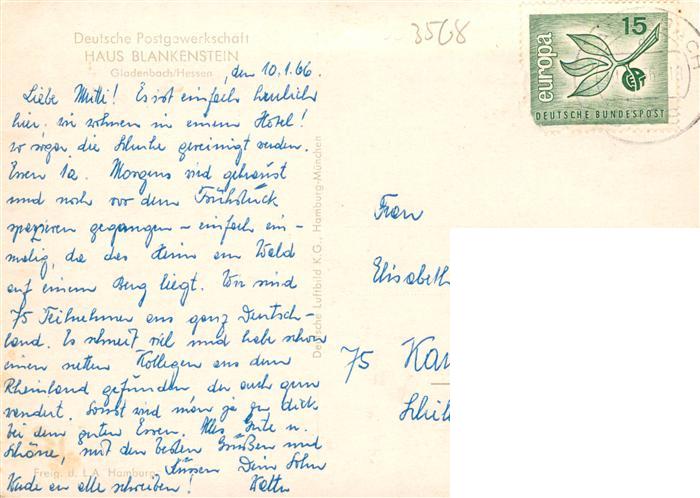 Deutsche Postgewerkschaft
HAUS BLANKENSTEIN
Gladenbach/Hessen
3568
europa
15
DEUTSCHE BUNDESPOST
, den 10.1.66.
Liebe Mutti! Es ist einfach herrlich
hier. wir wohnen in einem Hotel!
wo sogar die Schuhe gereinigt werden.
Essen 1a. Morgens wird gebraust
und noch vor dem Frühstück
spazieren gegangen – einfach ein-
malig, da das Heim am Wald
auf einem Berg liegt. Wir sind
75 Teilnehmer aus ganz Deutsch-
land. Es schneit viel und habe schon
einen netten Kollegen aus dem
Rheinland gefunden der auch gern
wandert. Sonst wird man ja zu dick
bei dem guten Essen. Alles Gute u.
Schöne, mit den besten Grüßen und
Küssen Dein Sohn
Werde an alle schreiben!
Freig. d. L.A. Hamburg
Deutsche Luftbild K.G., Hamburg-München
Frau
Elisabeth
75 Ka